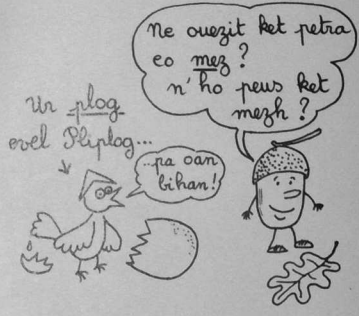 Ne ouezit ket petra
eo mez ?
n'ho peus ket
mezh ?
Ur plog
evel Pliplog...
...pa oan
bihan !